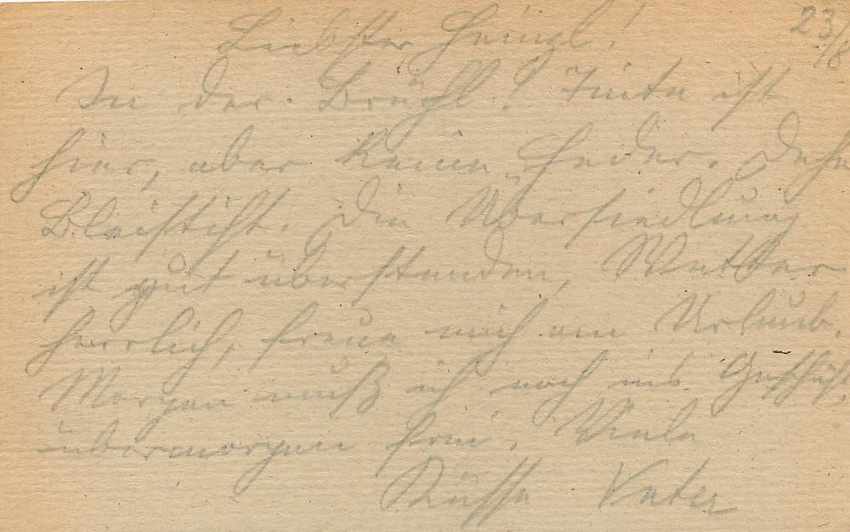 23/8
Liebster Heinzl!
In der Brühl! Tinte ist
hier, aber keine Feder. Daher
Bleistift. Die Übersiedlung
ist gut überstanden, Wetter
herrlich, freue mich am Urlaub.
Morgen muß ich noch ins Geschäft,
übermorgen frei. Viele
Küsse Vater